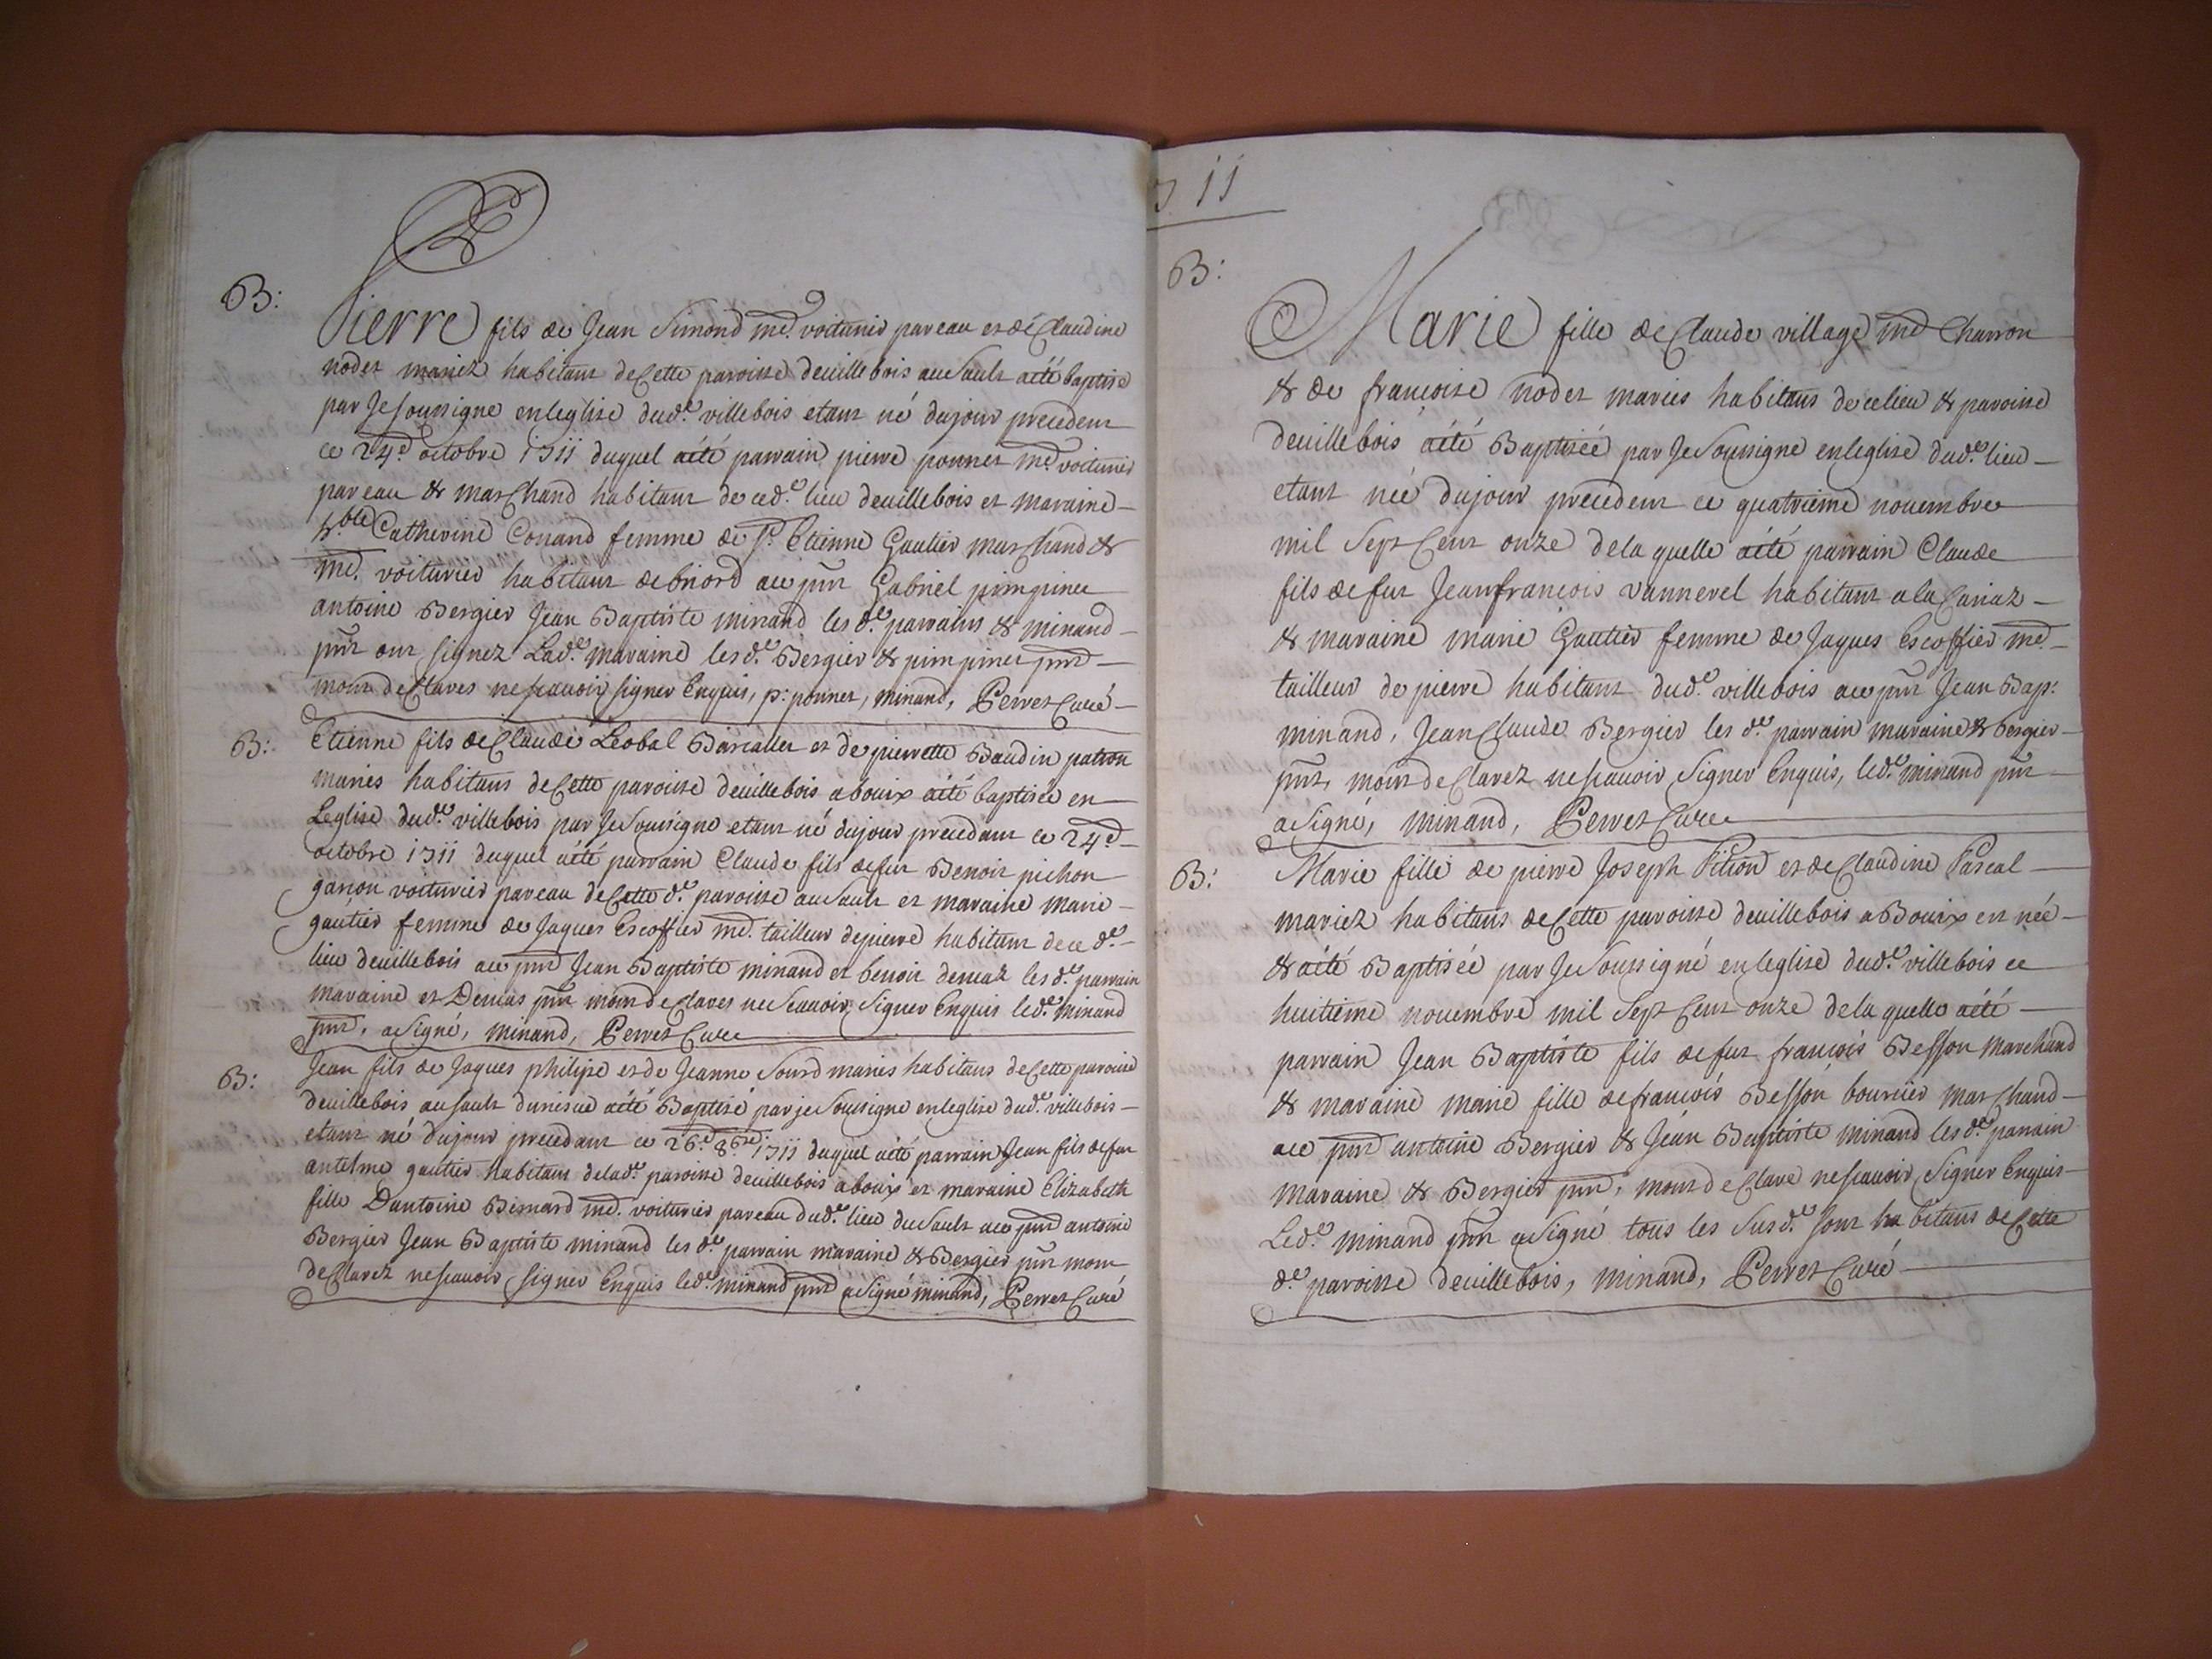 B:
Pierre fils de Jean Simond md. voiturier par eau et de Claudine
nodet mariez habitans de Cette paroisse de villebois au Sault a été baptisé
par Je soussigne en leglise dud.e villebois etant né du jour precedent
ce 24.e octobre 1711 duquel a été parrain pierre ponnet md voiturier
par eau & marchand habitant de ced.e lieu de villebois et maraine
h.ble Catherine Conand femme de Sr. Etienne Gautier marchand &
md. voiturier habitant de briord avec pnt Gabriel pimpinet
antoine Bergier Jean Baptiste minand les d.e parrains & minand
pnt ont signez Lad.e maraine les d.e Bergier & pimpinet pnt
mont declarés ne scavoir signer Enquis, p: ponnet, minand, Perret Curé
B: Etienne fils de Claude Leobal et de pierrette Baudin patron
maries habitans de Cette paroisse de villebois a bouix a été baptisée en
Leglise dud.e villebois par Je Soussigne etant né du jour precedant ce 24.e
octobre 1711 duquel a été parrain Claude fils de fut Benoit pichon
garson voiturier par eau de Cette d.e paroisse au Sault et maraine marie
gautier femme de Jaques Escoffier md. tailleur de pierre habitant de ce d.e
lieu de villebois avec pnt Jean Baptiste minand et benoit demaz les d.e parrain
maraine et Demas pnt mont declares ne Scavoir Signer Enquis led.e minand
pnt, a signé, minand, Perret Curé
B: Jean fils de Jaques philipe et de Jeanne Sourd maries habitans de Cette paroisse
de villebois au sault a été Baptisé par je Soussigne en leglise dud.e villebois
etant né du jour precedant ce 26.e 8.bre 1711 duquel a été parrain Jean fils de fut
antelme gautier habitant de lad.e paroisse de villebois a bouix et maraine Elizabeth
fille Dantoine Bernard md. voiturier par eau dud.e lieu du Sault avec pnt antoine
Bergier Jean Baptiste minand les d.e parrain maraine & Bergier pnt mont
declarez ne scavoir signer Enquis led.e minand pnt a signé minand, Perret Curé
11
B:
Marie fille de Claude village md Charron
& de francoise nodet maries habitans de ce lieu & paroisse
de villebois a été Baptisée par Je Soussigne en leglise dud.e lieu
etant née du jour precedent ce quatrieme novembre
mil Sept Cent onze de la quelle a été parrain Claude
fils de fut Jean francois vannerel habitant a la
& maraine marie Gautier femme de Jaques Escoffier md.
tailleur de pierre habitant dud.e villebois avec pnt Jean Bap:
minand, Jean Claude Bergier les d.e parrain maraine & bergier
pnt, mont declarez ne scavoir Signer Enquis, led.e minand pnt
a Signé, minand, Perret Curé
B: Marie fille de pierre Joseph Pitiod et de Claudine Pascal
mariez habitans de Cette paroisse de villebois a Bouix est née
& a été Baptisée par Je Soussigné en leglise dud.e villebois ce
huitieme novembre mil Sept Cent onze de la quelle a été
parrain Jean Baptiste fils de fut francois Besson Marchand
& maraine marie fille de francois Besson boursier marchand
avec pnt antoine Bergier & Jean Baptiste minand les d.e parrain
maraine & Bergier pnt, mont declaré ne scavoir Signer Enquis
Led.e minand pnt a Signé tous les Susd.e sont habitans de Cette
d.e paroisse de villebois, minand, Perret Curé